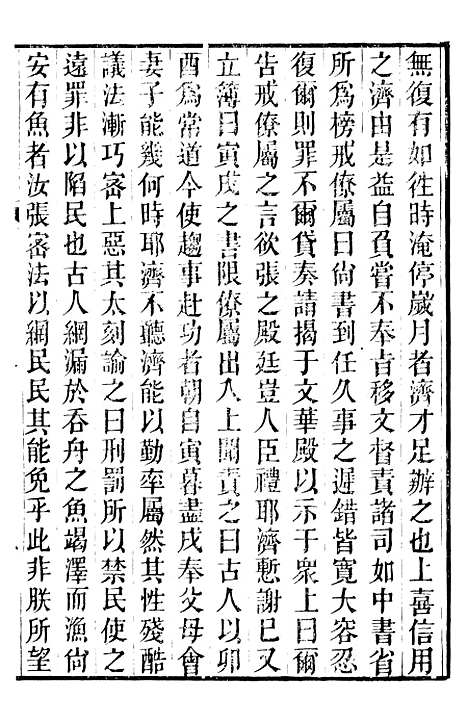 無復有如徃時淹停歲月者濟才足辦之也上喜信用
之濟由是益自負嘗不奉㫖移文督責諸司如中書省
所爲榜戒僚屬曰尙書到任久事之遲錯皆寬大容忍
復爾則罪不爾貸奏請揭于文華殿以示于衆上曰爾
告戒僚屬之言欲張之殿廷豈人臣禮耶濟慙謝已又
立簿曰寅戌之書限僚屬出入上聞責之曰古人以卯
酉爲常道今使趨事赴功者朝自寅暮盡戌奉父母會
妻子能幾何時耶濟不聽濟能以勤率屬然其性殘酷
議法漸巧密上惡其太刻諭之曰刑罰所以禁民使之
遠罪非以陷民也古人網漏於吞舟之魚竭澤而漁尙
安有魚者汝張密法以網民民其能免乎此非朕所望